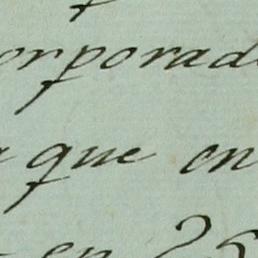 orporad
a que en
en 25